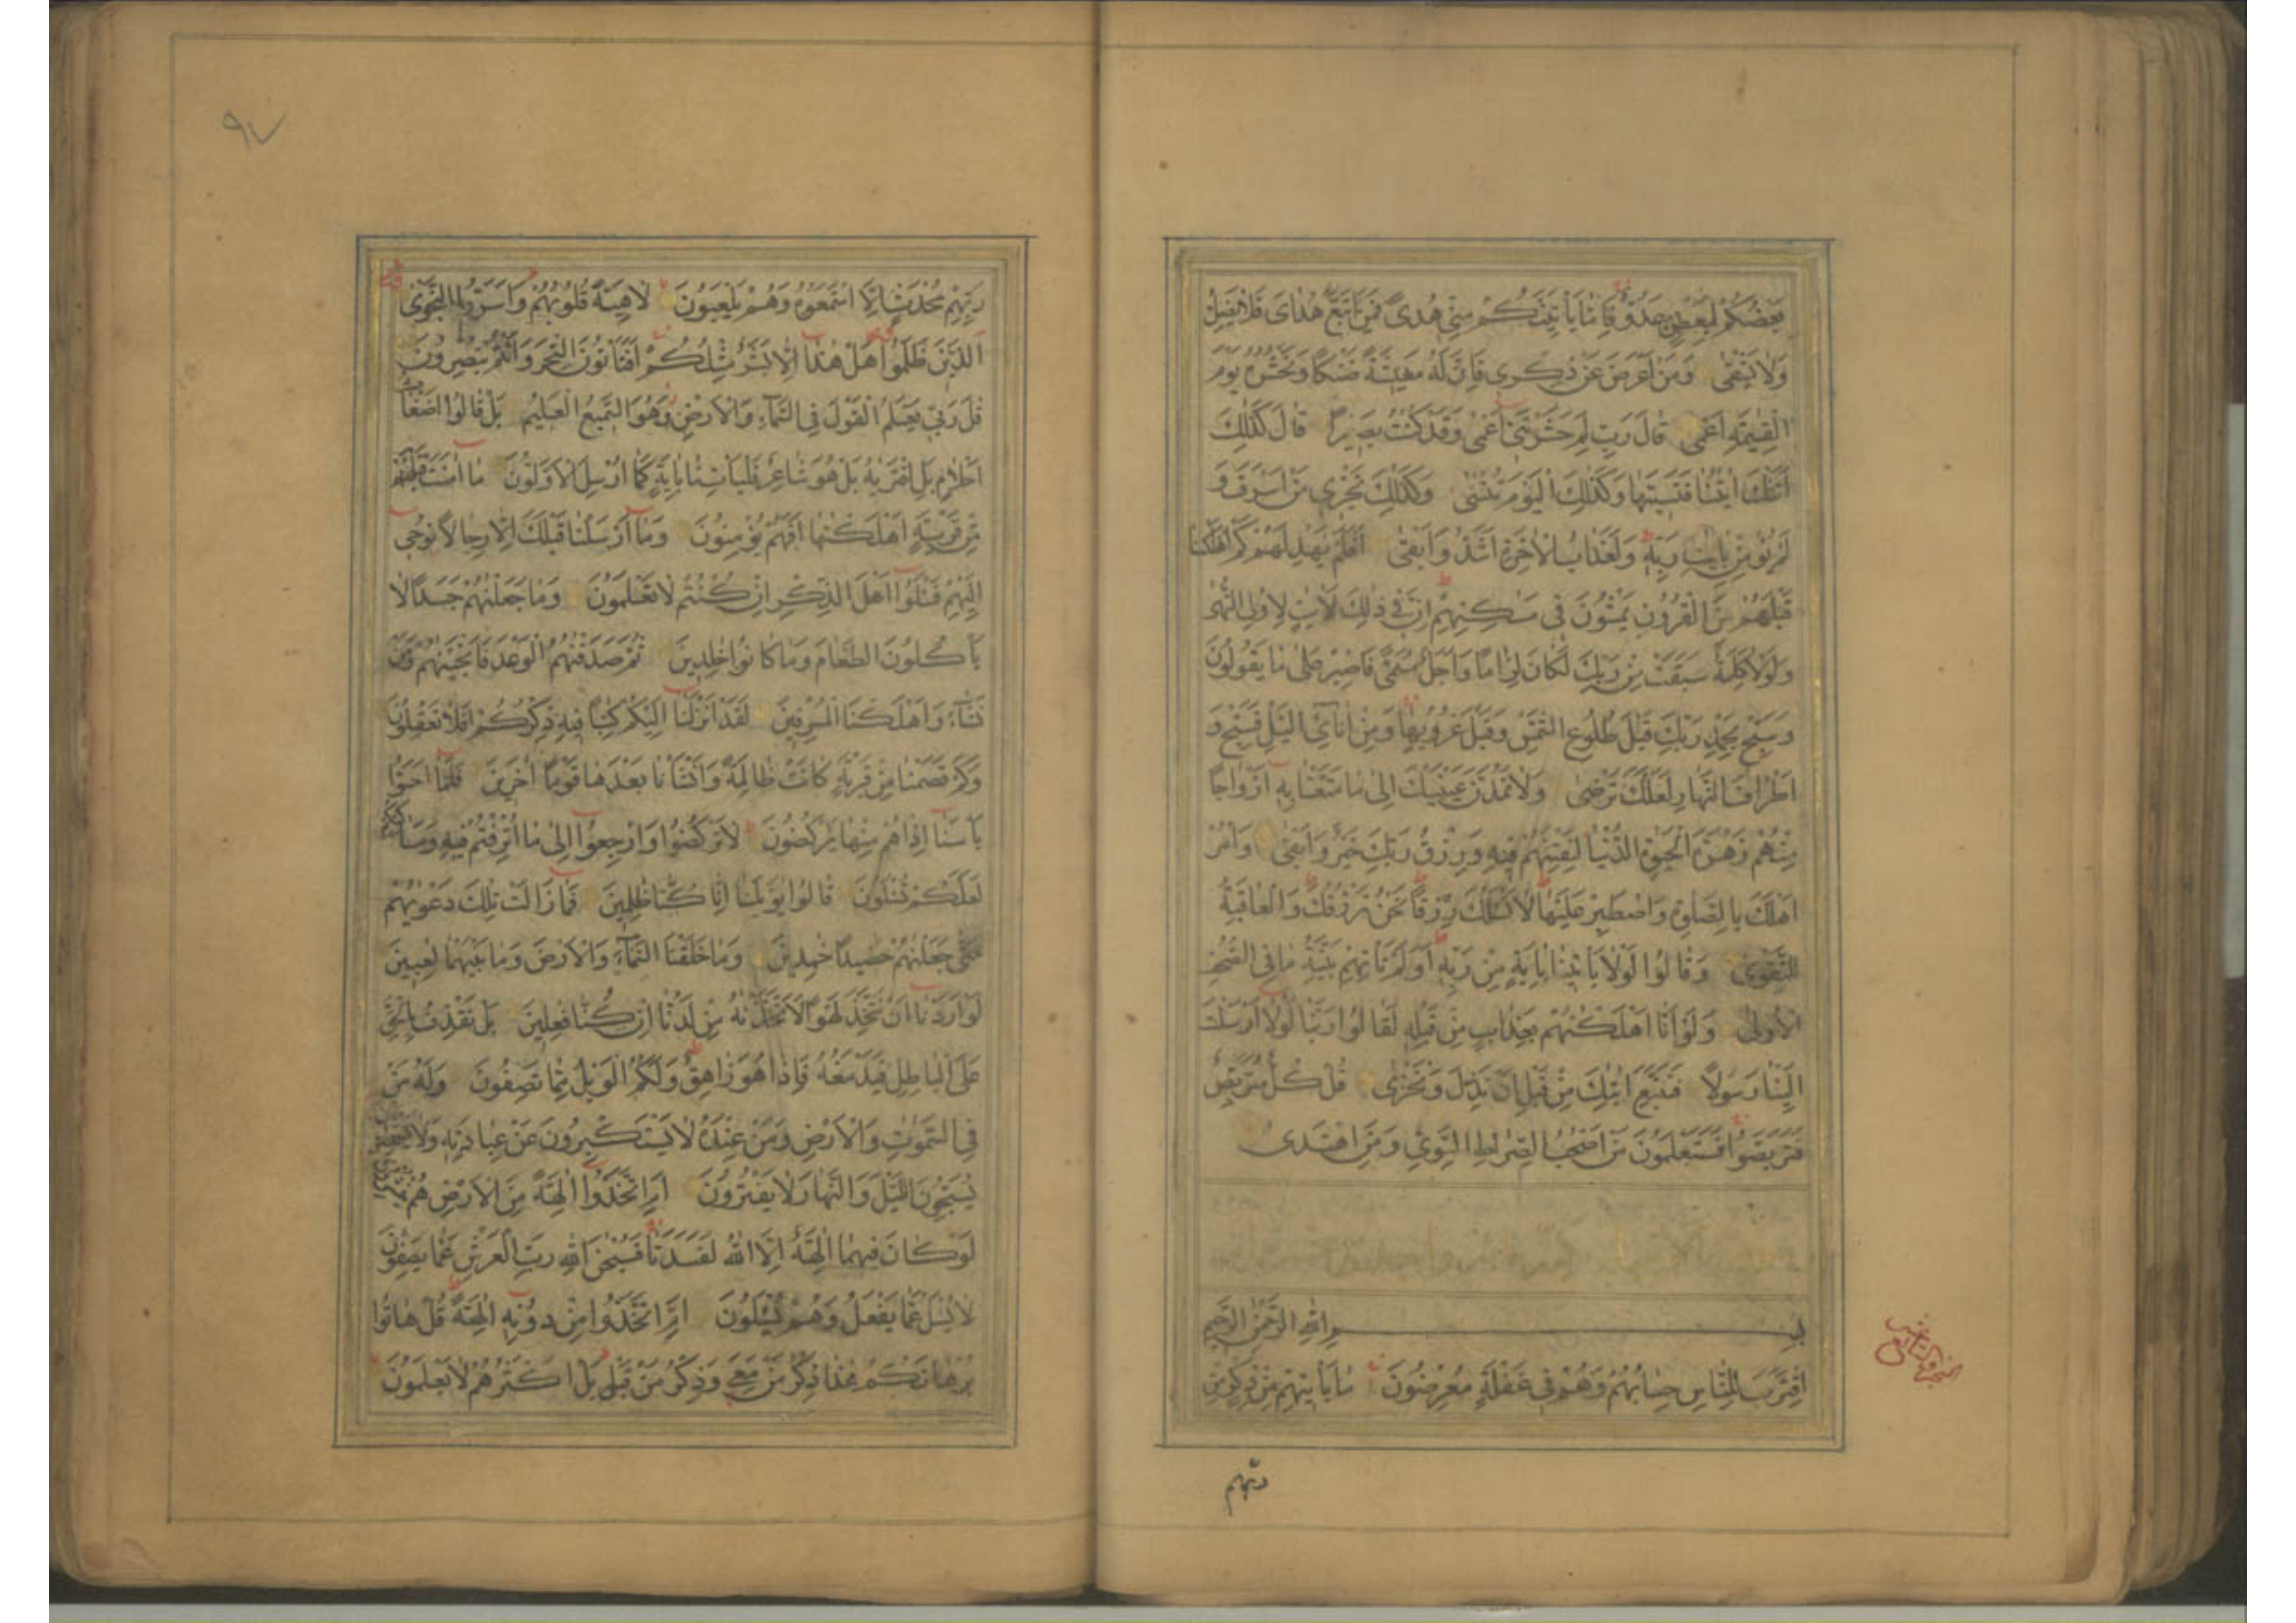 بَعْضُكُمْ لِبَعْضٍ عَدُوٌّ فَاِمَّا يَأْتِيَنَّكُمْ مِنِّي هُدًى فَمَنِ اتَّبَعَ هُدَايَ فَلَا يَضِلُّ
وَلَا يَشْقٰى وَمَنْ اَعْرَضَ عَنْ ذِكْرِي فَاِنَّ لَهُ مَعِيشَةً ضَنْكًا وَنَحْشُرُهُ يَوْمَ
الْقِيٰمَةِ اَعْمٰى قَالَ رَبِّ لِمَ حَشَرْتَنِي اَعْمٰى وَقَدْ كُنْتُ بَصِيرًا قَالَ كَذٰلِكَ
اَتَتْكَ اٰيٰتُنَا فَنَسِيتَهَا وَكَذٰلِكَ الْيَوْمَ تُنْسٰى وَكَذٰلِكَ نَجْزِي مَنْ اَسْرَفَ وَ
لَمْ يُؤْمِنْ بِاٰيٰتِ رَبِّهِ وَلَعَذَابُ الْاٰخِرَةِ اَشَدُّ وَاَبْقٰى اَفَلَمْ يَهْدِ لَهُمْ كَمْ اَهْلَكْنَا
قَبْلَهُمْ مِنَ الْقُرُونِ يَمْشُونَ فِي مَسٰكِنِهِمْ اِنَّ فِي ذٰلِكَ لَاٰيٰتٍ لِاُولِي النُّهٰى
وَلَوْلَا كَلِمَةٌ سَبَقَتْ مِنْ رَبِّكَ لَكَانَ لِزَامًا وَاَجَلٌ مُسَمًّى فَاصْبِرْ عَلٰى مَا يَقُولُونَ
وَسَبِّحْ بِحَمْدِ رَبِّكَ قَبْلَ طُلُوعِ الشَّمْسِ وَقَبْلَ غُرُوبِهَا وَمِنْ اٰنَائِ الَّيْلِ فَسَبِّحْ وَ
اَطْرَافَ النَّهَارِ لَعَلَّكَ تَرْضٰى وَلَا تَمُدَّنَّ عَيْنَيْكَ اِلٰى مَا مَتَّعْنَا بِهِ اَزْوَاجًا
مِنْهُمْ زَهْرَةَ الْحَيٰوةِ الدُّنْيَا لِنَفْتِنَهُمْ فِيهِ وَرِزْقُ رَبِّكَ خَيْرٌ وَاَبْقٰى وَاْمُرْ
اَهْلَكَ بِالصَّلٰوةِ وَاصْطَبِرْ عَلَيْهَا لَا نَسْـَٔلُكَ رِزْقًا نَحْنُ نَرْزُقُكَ وَالْعَاقِبَةُ
لِلتَّقْوٰى وَقَالُوا لَوْلَا يَأْتِينَا بِاٰيَةٍ مِنْ رَبِّهِ اَوَلَمْ تَأْتِهِمْ بَيِّنَةُ مَا فِي الصُّحُفِ
الْاُولٰى وَلَوْ اَنَّا اَهْلَكْنٰهُمْ بِعَذَابٍ مِنْ قَبْلِهِ لَقَالُوا رَبَّنَا لَوْلَا اَرْسَلْتَ
اِلَيْنَا رَسُولًا فَنَتَّبِعَ اٰيٰتِكَ مِنْ قَبْلِ اَنْ نَذِلَّ وَنَخْزٰى قُلْ كُلٌّ مُتَرَبِّصٌ
فَتَرَبَّصُوا فَسَتَعْلَمُونَ مَنْ اَصْحٰبُ الصِّرَاطِ السَّوِيِّ وَمَنِ اهْتَدٰى
بِسْمِ اللّٰهِ الرَّحْمٰنِ الرَّحِيمِ
اِقْتَرَبَ لِلنَّاسِ حِسَابُهُمْ وَهُمْ فِي غَفْلَةٍ مُعْرِضُونَ مَا يَأْتِيهِمْ مِنْ ذِكْرٍ مِنْ
ربهم
٩٧
رَبِّهِمْ مُحْدَثٍ اِلَّا اسْتَمَعُوهُ وَهُمْ يَلْعَبُونَ لَاهِيَةً قُلُوبُهُمْ وَاَسَرُّوا النَّجْوَى
الَّذِينَ ظَلَمُوا هَلْ هٰذَا اِلَّا بَشَرٌ مِثْلُكُمْ اَفَتَأْتُونَ السِّحْرَ وَاَنْتُمْ تُبْصِرُونَ
قٰلَ رَبِّي يَعْلَمُ الْقَوْلَ فِي السَّمَاءِ وَالْاَرْضِ وَهُوَ السَّمِيعُ الْعَلِيمُ بَلْ قَالُوا اَضْغَاثُ
اَحْلَامٍ بَلِ افْتَرٰيهُ بَلْ هُوَ شَاعِرٌ فَلْيَأْتِنَا بِاٰيَةٍ كَمَا اُرْسِلَ الْاَوَّلُونَ مَا اٰمَنَتْ قَبْلَهُمْ
مِنْ قَرْيَةٍ اَهْلَكْنٰهَا اَفَهُمْ يُؤْمِنُونَ وَمَا اَرْسَلْنَا قَبْلَكَ اِلَّا رِجَالًا نُوحِي
اِلَيْهِمْ فَسْـَٔلُوا اَهْلَ الذِّكْرِ اِنْ كُنْتُمْ لَا تَعْلَمُونَ وَمَا جَعَلْنٰهُمْ جَسَدًا لَا
يَأْكُلُونَ الطَّعَامَ وَمَا كَانُوا خٰلِدِينَ ثُمَّ صَدَقْنٰهُمُ الْوَعْدَ فَاَنْجَيْنٰهُمْ وَمَنْ
نَشَاءُ وَاَهْلَكْنَا الْمُسْرِفِينَ لَقَدْ اَنْزَلْنَا اِلَيْكُمْ كِتٰبًا فِيهِ ذِكْرُكُمْ اَفَلَا تَعْقِلُونَ
وَكَمْ قَصَمْنَا مِنْ قَرْيَةٍ كَانَتْ ظَالِمَةً وَاَنْشَأْنَا بَعْدَهَا قَوْمًا اٰخَرِينَ فَلَمَّا اَحَسُّوا
بَأْسَنَا اِذَا هُمْ مِنْهَا يَرْكُضُونَ لَا تَرْكُضُوا وَارْجِعُوا اِلٰى مَا اُتْرِفْتُمْ فِيهِ وَمَسَاكِنِكُمْ
لَعَلَّكُمْ تُسْـَٔلُونَ قَالُوا يٰوَيْلَنَا اِنَّا كُنَّا ظٰلِمِينَ فَمَا زَالَتْ تِلْكَ دَعْوٰيهُمْ
حَتّٰى جَعَلْنٰهُمْ حَصِيدًا خٰمِدِينَ وَمَا خَلَقْنَا السَّمَاءَ وَالْاَرْضَ وَمَا بَيْنَهُمَا لٰعِبِينَ
لَوْ اَرَدْنَا اَنْ نَتَّخِذَ لَهْوًا لَاتَّخَذْنٰهُ مِنْ لَدُنَّا اِنْ كُنَّا فٰعِلِينَ بَلْ نَقْذِفُ بِالْحَقِّ
عَلَى الْبَاطِلِ فَيَدْمَغُهُ فَاِذَا هُوَ زَاهِقٌ وَلَكُمُ الْوَيْلُ مِمَّا تَصِفُونَ وَلَهُ مَنْ
فِي السَّمٰوٰتِ وَالْاَرْضِ وَمَنْ عِنْدَهُ لَا يَسْتَكْبِرُونَ عَنْ عِبَادَتِهِ وَلَا يَسْتَحْسِرُونَ
يُسَبِّحُونَ الَّيْلَ وَالنَّهَارَ لَا يَفْتُرُونَ اَمِ اتَّخَذُوا اٰلِهَةً مِنَ الْاَرْضِ هُمْ يُنْشِرُونَ
لَوْ كَانَ فِيهِمَا اٰلِهَةٌ اِلَّا اللّٰهُ لَفَسَدَتَا فَسُبْحٰنَ اللّٰهِ رَبِّ الْعَرْشِ عَمَّا يَصِفُونَ
لَا يُسْـَٔلُ عَمَّا يَفْعَلُ وَهُمْ يُسْـَٔلُونَ اَمِ اتَّخَذُوا مِنْ دُونِهِ اٰلِهَةً قُلْ هَاتُوا
بُرْهَانَكُمْ هٰذَا ذِكْرُ مَنْ مَعِيَ وَذِكْرُ مَنْ قَبْلِي بَلْ اَكْثَرُهُمْ لَا يَعْلَمُونَ